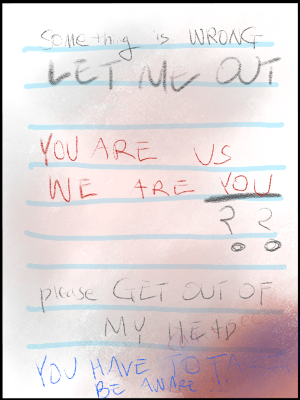 something is WRONG
LET ME OUT
YOU ARE US
WE ARE YOU
??
please GET OUT OF
MY HEAD
YOU HAVE TO
BE AWARE